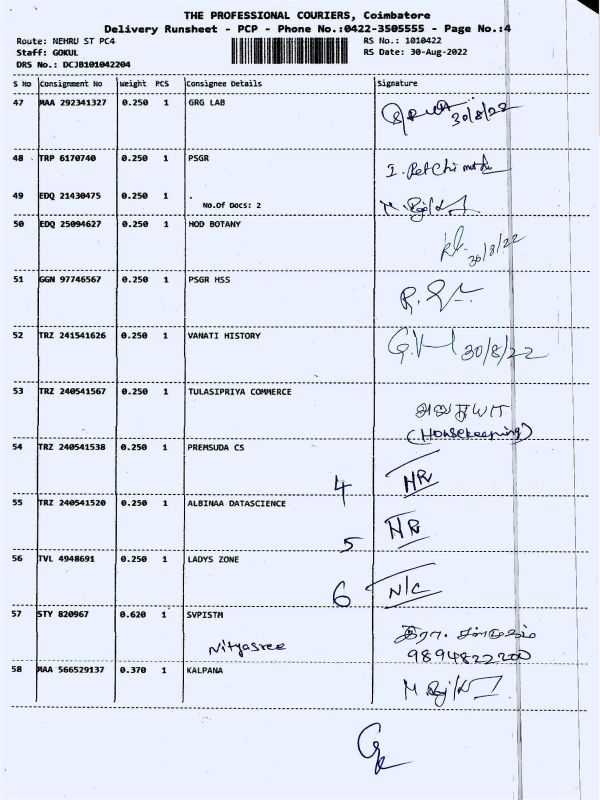 THE PROFESSIONAL COURIERS, Coimbatore
Delivery Runsheet - PCP - Phone No.:0422-3505555 - Page No.:4
Route: NEHRU ST PC4 RS No.: 1010422
Staff: GOKUL RS Date: 30-Aug-2022
DRS No.: DCJB101042204
S No Consignment No Weight PCS Consignee Details Signature
47 MAA 292341327 0.250 1 GRG LAB 30/8/22
48 TRP 6170740 0.250 1 PSGR
49 EDQ 21430475 0.250 1 .
No.Of Docs: 2
50 EDQ 25094627 0.250 1 HOD BOTANY 30/8/22
51 GGN 97746567 0.250 1 PSGR HSS
52 TRZ 241541626 0.250 1 VANATI HISTORY 30/8/22
53 TRZ 240541567 0.250 1 TULASIPRIYA COMMERCE
(Housekeeping)
54 TRZ 240541538 0.250 1 PREMSUDA CS 4 NR
55 TRZ 240541520 0.250 1 ALBINAA DATASCIENCE 5 NR
56 TVL 4948691 0.250 1 LADYS ZONE 6 N/C
57 STY 820967 0.620 1 SVPISTM
Nityasree 9894822200
58 MAA 566529137 0.370 1 KALPANA